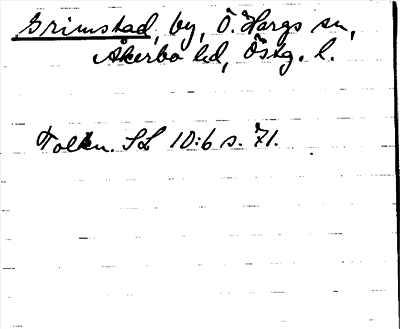 Grimstad, by, Ö. Hargs sn,
Åkerbo hd, Östg. l.
Tolkn. SL 10:6 s. 71.